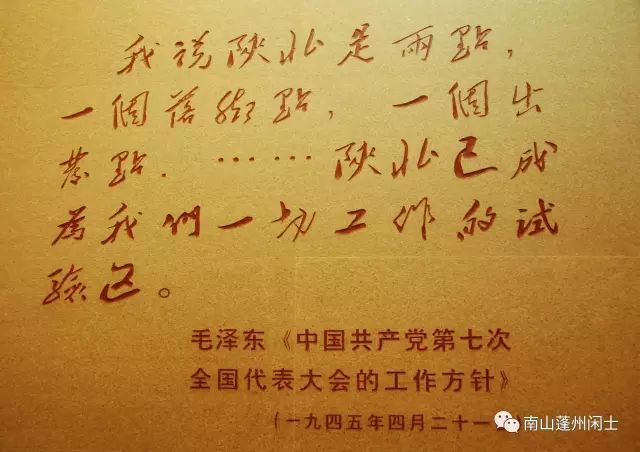 我说陕北是兩點，
一個落脚點，一個出
發點．……陕北已成
為我們一切工作的試
驗区。
毛泽东《中国共产党第七次
全国代表大会的工作方针》
（一九四五年四月二十一
南山蓬州闲士